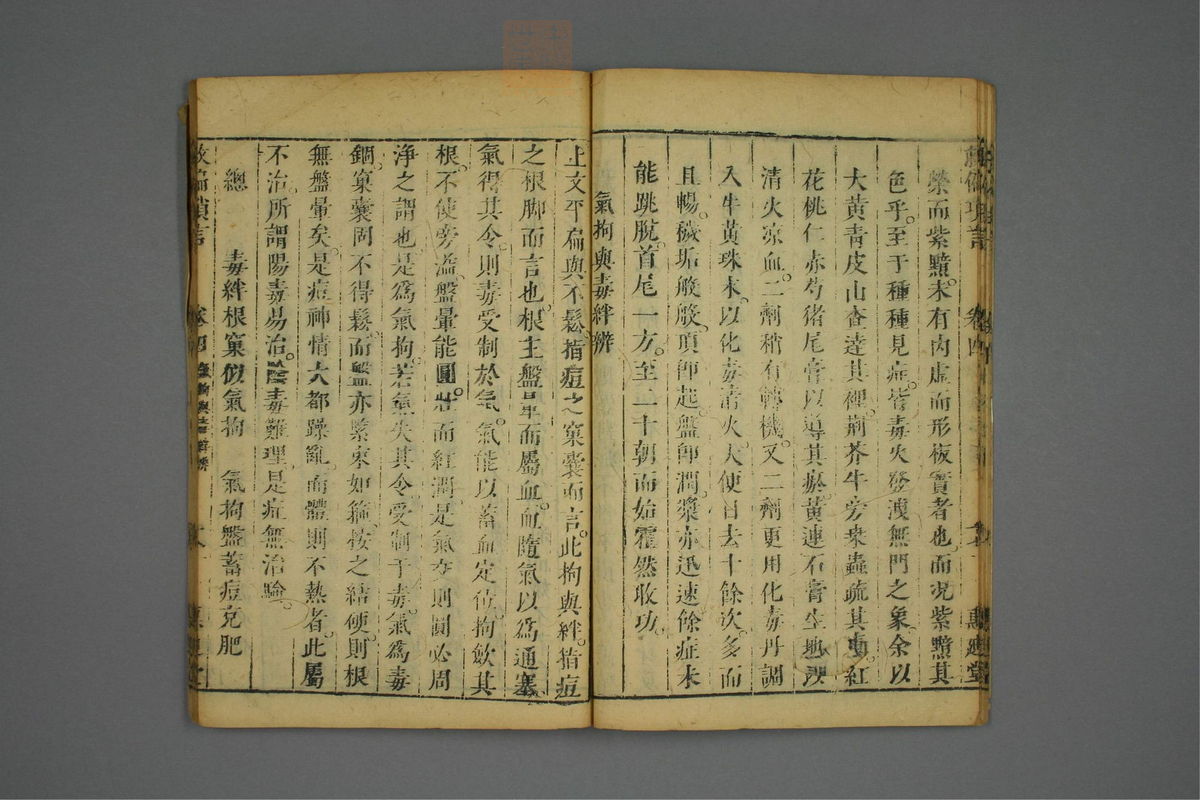 榮而紫黯未有內虛而形板實者也而况紫黯其
色乎至于種種見症皆毒火發洩無門之象余以
大黃靑皮山查達其裡荆芥牛旁衆蟲疏其
花桃仁赤芍猪尾膏以導其瘀黃連石膏生地
清火凉血二劑稍有轉機又二劑更用化毒丹調
入牛黃珠末以化毒清火大便日去十餘次多而
且暢穢垢般般頂卽起盤卽潤漿亦迅速餘症未
能跳脫首尾一方至二十朝而始霍然收功
氣拘與毒絆辨
上文平扁與不鬆指痘之窠囊而言此拘與絆指痘
之根脚而言也根主盤暈而屬血血隨氣以爲通塞
氣得其令則毒受制於氣氣能以蓄血定位拘歛其
根不使旁溢盤暈能圓壯而經潤是氣交則圓必周
淨之謂也是爲氣拘若氣失其令受制于毒氣爲毒
錮窠囊固不得鬆而盤亦緊束如箍按之結硬則根
無盤暈矣是痘神情大都躁亂而體則不熱者此屬
不治所謂陽毒易治陰毒難理是症無治驗
總 毒絆根窠似氣拘 氣拘盤蓄痘克肥
救偏瑣言 卷四 氣拘與毒絆辨